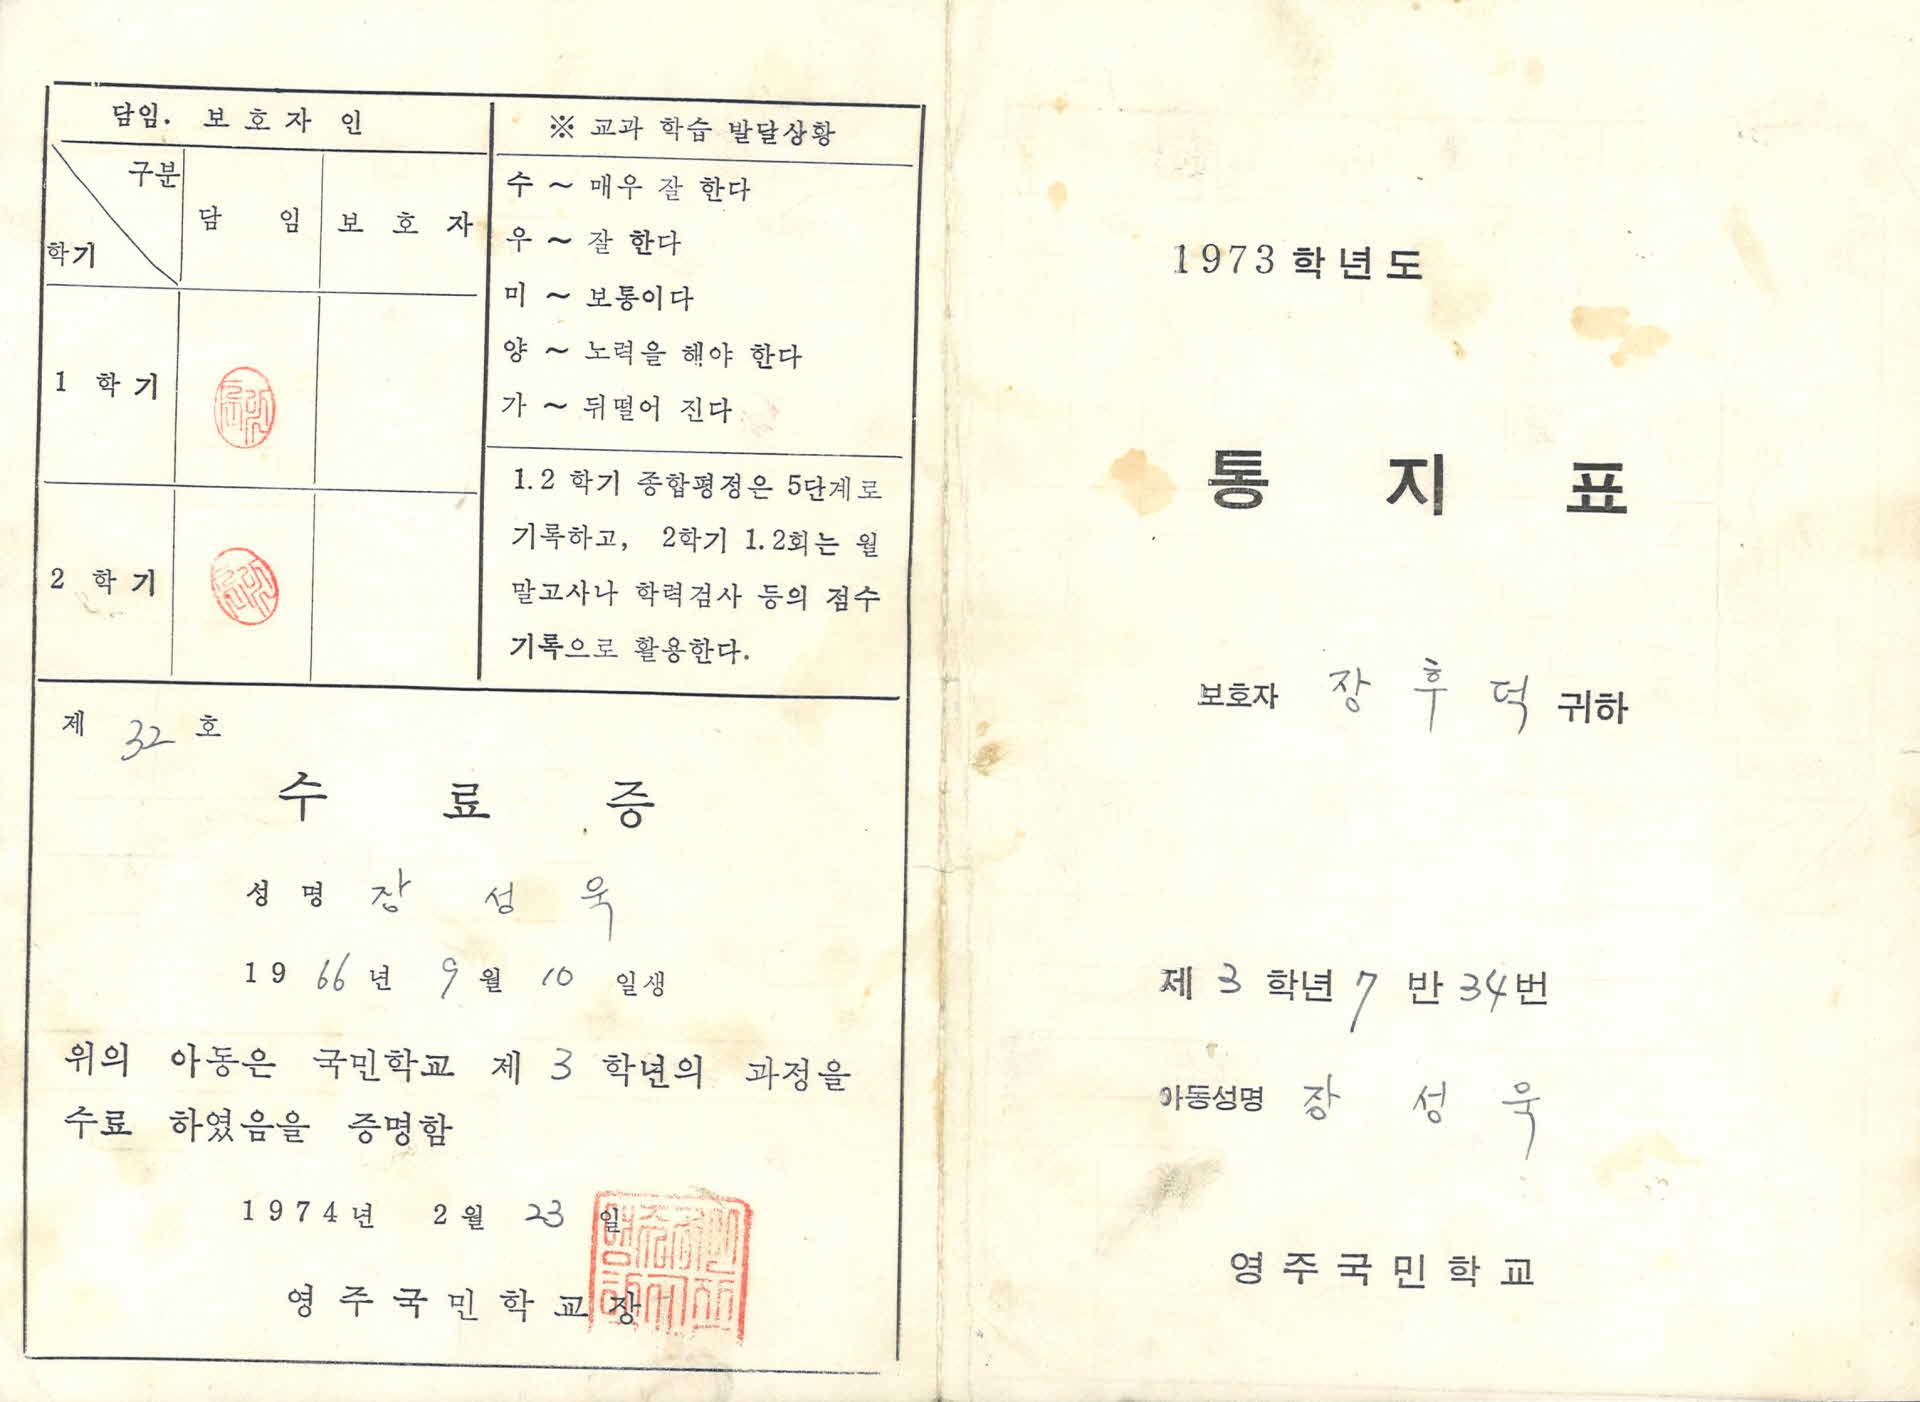 담임. 보호자 인
구분
학기
담 임
보 호 자
1 학기
2 학기
※ 교과 학습 발달상황
수 ~ 매우 잘 한다
우 ~ 잘 한다
미 ~ 보통이다
양 ~ 노력을 해야 한다
가 ~ 뒤떨어 진다
1.2 학기 종합평정은 5단계로
기록하고, 2학기 1.2회는 월
말고사나 학력검사 등의 점수
기록으로 활용한다.
제 32 호
수 료 증
성 명 장 성 욱
1966년 9월 10 일생
위의 아동은 국민학교 제 3 학년의 과정을
수료 하였음을 증명함
1974년 2월 23일
영주국민학교장
1973학년도
통 지 표
보호자 장 후 덕 귀하
제 3 학년 7 반 34번
아동성명 장 성 욱
영주국민학교